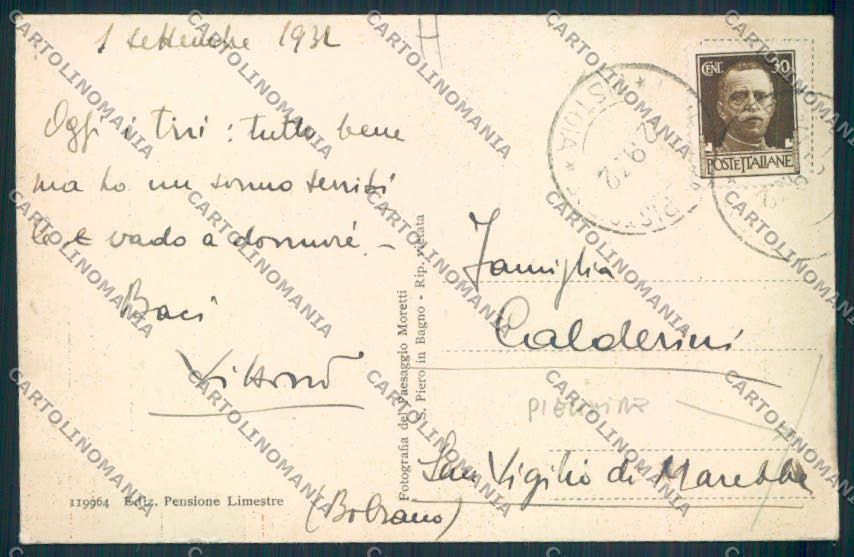 1 settembre 1932
H
Oggi i tiri: tutto bene
ma ho un sonno terribi
le e vado a dormire. –
Baci
Vittorio
119964 Ediz. Pensione Limestre
Fotografia del Paesaggio Moretti
S. Piero in Bagno - Rip. vietata
CENT. 30
POSTE ITALIANE
PISTOIA
2.9.32
Famiglia
Calderini
San Vigilio di Marebbe
(Bolzano)
CARTOLINOMANIA